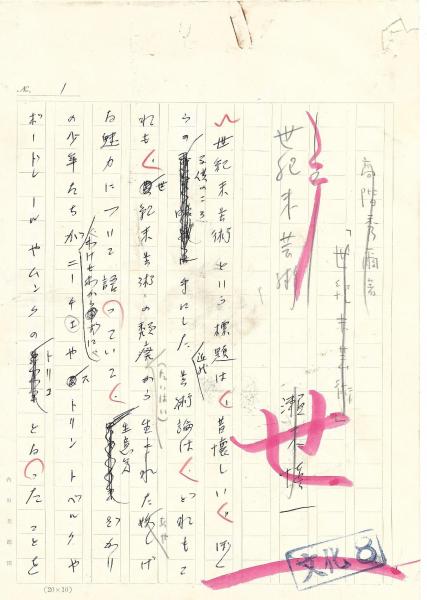 No. 1
高階秀爾著
「世紀末芸術」
世紀末芸術
世
文化 8
世紀末芸術という標題は昔懐しい。ぼく
らの子供のころ手にした近代芸術論は、どれもこ
れも世紀末芸術の頽廃から生まれた妖しげ
(たいはい)
な魅力について語っていて、生意気ざかり
の少年たちがニーチェやストリントベルクや
ボードレールやムンクのトリコとなったことを
(20×10)